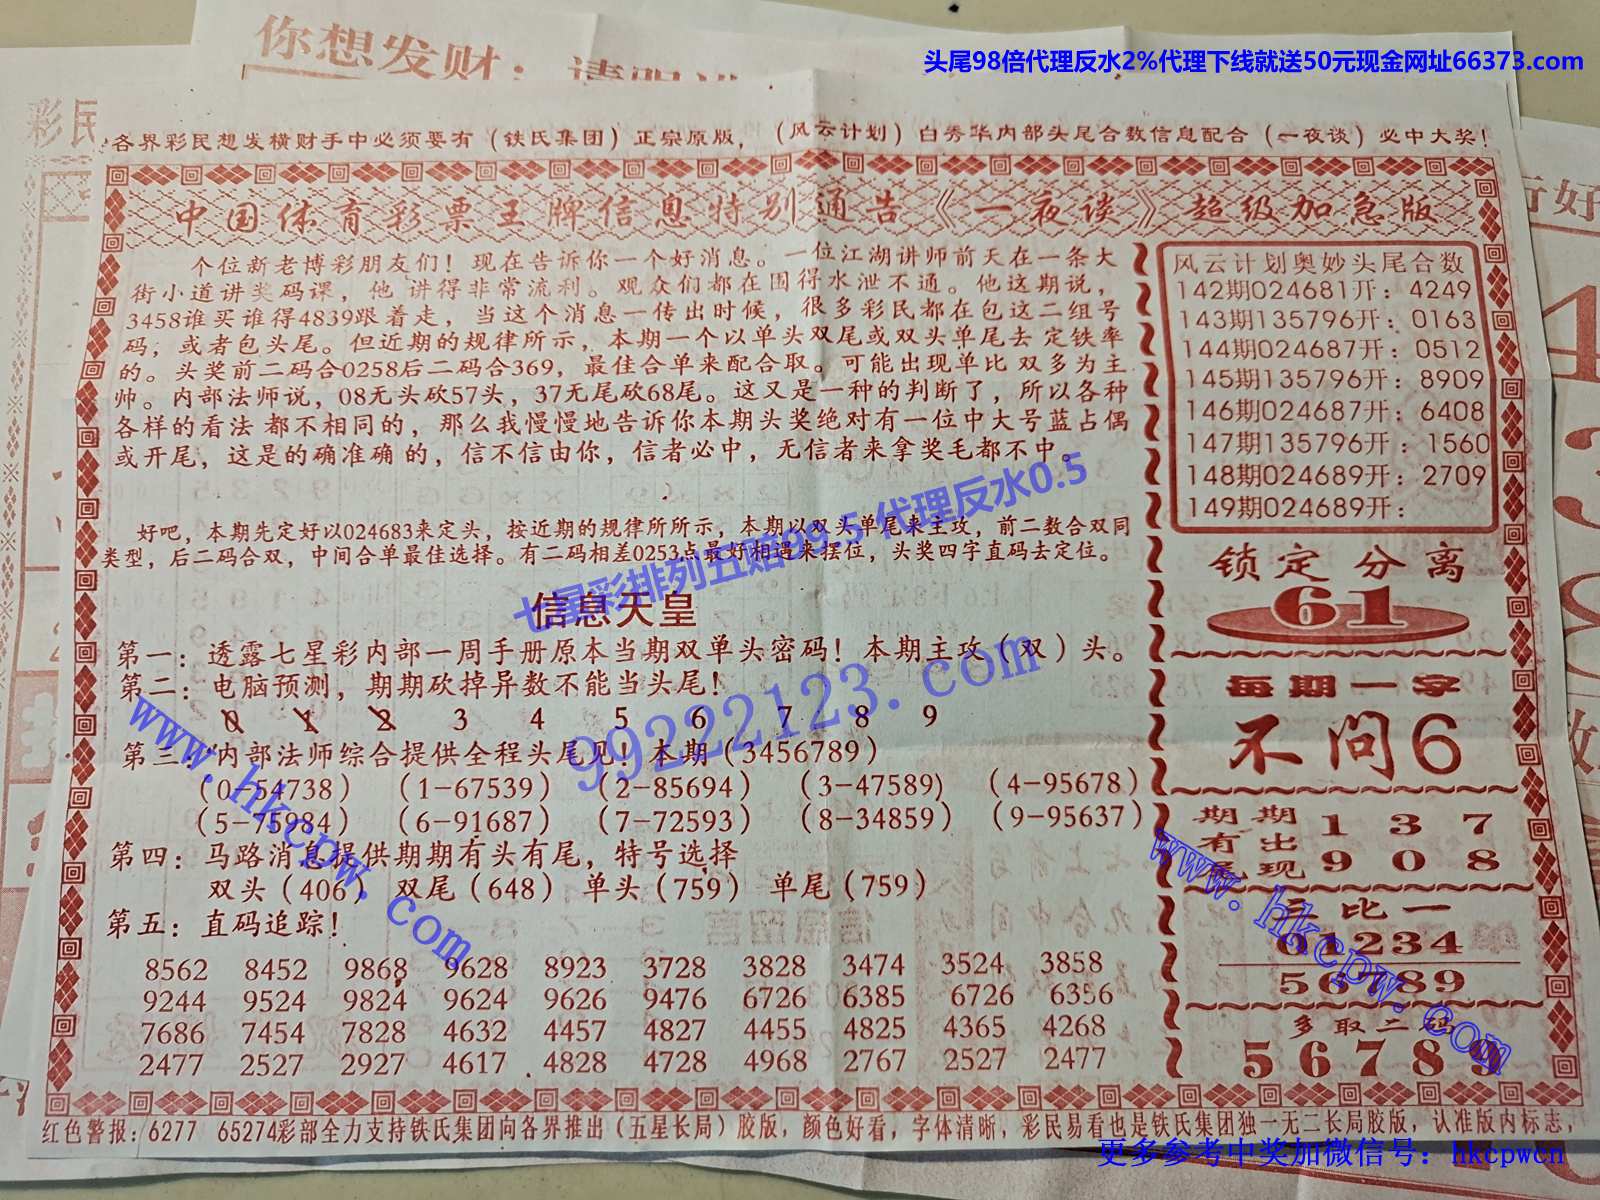 头尾98倍代理反水2%代理下线就送50元现金网址66373.com
你想发财：请
彩民
各界彩民想发横财手中必须要有（铁氏集团）正宗原版，（风云计划）白秀华内部头尾合数信息配合（一夜谈）必中大奖！
中国体育彩票王牌信息特别通告《一夜谈》超级加急版
个位新老博彩朋友们！现在告诉你一个好消息。一位江湖讲师前天在一条大
街小道讲奖码课，他 讲得非常流利。观众们都在围得水泄不通。他这期说，
3458谁买谁得4839跟着走，当这个消息一传出时候，很多彩民都在包这二组号
码；或者包头尾。但近期的规律所示，本期一个以单头双尾或双头单尾去 定铁率
的。头奖前二码合0258后二码合369，最佳合单来配合取。可能出现单比 双多为主
帅。内部法师说，08无头砍57头，37无尾砍68尾。这又是一种的判断了，所以各种
各样的看法 都不相同的，那么我慢慢地告诉你本期头奖绝对有一位中大号蓝占偶
或开尾，这是的确准确 的，信不信由你，信者必中，无信者来拿奖毛都不中。
好吧，本期先定好以024683来定头，按近期的规律所所示，本期以双头单尾来主攻，前二数合双同
类型，后二码合双，中间合单最佳选择。有二码相差0253点最好相遇来摆位，头奖四字直码去定位。
七星彩排列五赔99.5 代理反水0.5
信息天皇
第一：透露七星彩内部一周手册原本当期双单头密码！本期主攻（双）头。
第二：电脑预测，期期砍掉异数不能当头尾！
0 1 2 3 4 5 6 7 8 9
99222123.com
第三：内部法师综合提供全程头尾见！本期（3456789）
（0-54738） （1-67539） （2-85694） （3-47589） （4-95678）
（5-75984） （6-91687） （7-72593） （8-34859） （9-95637）
第四：马路消息提供期期有头有尾，特号选择
双头（406） 双尾（648） 单头（759） 单尾（759）
www.hkcpw.com
第五：直码追踪！
8562 8452 9868 9628 8923 3728 3828 3474 3524 3858
9244 9524 9824 9624 9626 9476 6726 6385 6726 6356
7686 7454 7828 4632 4457 4827 4455 4825 4365 4268
2477 2527 2927 4617 4828 4728 4968 2767 2527 2477
风云计划奥妙头尾合数
142期024681开：4249
143期135796开：0163
144期024687开：0512
145期135796开：8909
146期024687开：6408
147期135796开：1560
148期024689开：2709
149期024689开：
锁定分离
61
每期一字
不问6
期期 1 3 7
有出
尾现 9 0 8
www.hkcpw.com
三比一
01234
56789
多取二码
5 6 7 8 9
红色警报：6277 65274彩部全力支持铁氏集团向各界推出（五星长局）胶版，颜色好看，字体清晰，彩民易看也是铁氏集团独一无二长局胶版，认准版内标志，
更多参考中奖加微信号：hkcpwcn